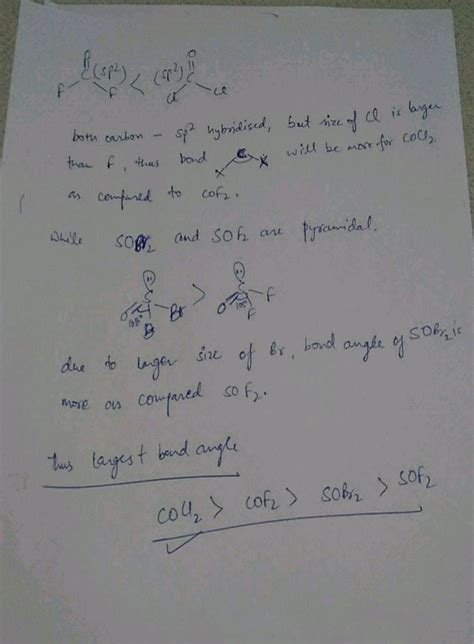 O O
F C (sp²) F < (sp²) C Cl Cl
both carbon - sp² hybridised, but size of Cl is larger
than F, thus bond X C X will be more for COCl2
as compared to COF2.
While SOBr2 and SOF2 are pyramidal.
O S Br Br 105° > O S F F 105°
due to larger size of Br, bond angle of SOBr2 is
more as compared SOF2.
Thus largest bond angle
COCl2 > COF2 > SOBr2 > SOF2